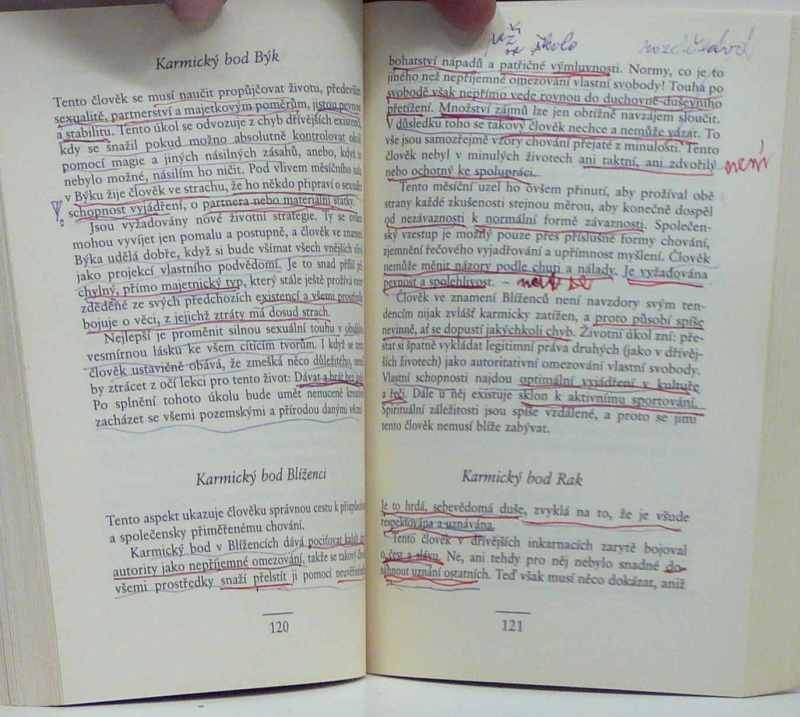 Karmický bod Býk
Tento člověk se musí naučit propůjčovat životu, především
sexualitě, partnerství a majetkovým poměrům, jistou pevnost
a stabilitu. Tento úkol se odvozuje z chyb dřívějších existencí,
kdy se snažil pokud možno absolutně kontrolovat okolí
pomocí magie a jiných násilných zásahů, anebo, když to
nebylo možné, násilím ho ničit. Pod vlivem měsíčního uzlu
v Býku žije člověk ve strachu, že ho někdo připraví o sexuální
schopnost vyjádření, o partnera nebo materiální statky.
Jsou vyžadovány nové životní strategie. Ty se ovšem
mohou vyvíjet jen pomalu a postupně, a člověk ve znamení
Býka udělá dobře, když si bude všímat všech vnějších vlivů
jako projekcí vlastního podvědomí. Je to snad příliš
chylný, přímo majetnický typ, který stále ještě prožívá
zděděné ze svých předchozích existencí a všemi prostředky
bojuje o věci, z jejichž ztráty má dosud strach.
Nejlepší je proměnit silnou sexuální touhu v
vesmírnou lásku ke všem cítícím tvorům. I když se tento
člověk ustavičně obává, že zmešká něco důležitého, neměl
by ztrácet z očí lekci pro tento život: Dávat a brát bez
Po splnění tohoto úkolu bude umět nenuceně
zacházet se všemi pozemskými a přírodou danými věcmi.
Karmický bod Blíženci
Tento aspekt ukazuje člověku správnou cestu k
a společensky přiměřenému chování.
Karmický bod v Blížencích dává pociťovat každé
autority jako nepříjemné omezování, takže se takový člověk
všemi prostředky snaží přelstít ji pomocí
120
už
ve škole
bohatství nápadů a patřičné výmluvnosti. Normy, co je to
jiného než nepříjemné omezování vlastní svobody! Touha po
svobodě však nepřímo vede rovnou do duchovně-duševního
přetížení. Množství zájmů lze jen obtížně navzájem sloučit.
V důsledku toho se takový člověk nechce a nemůže vázat. To
vše jsou samozřejmě vzory chování přejaté z minulosti. Tento
člověk nebyl v minulých životech ani taktní, ani zdvořilý není
nebo ochotný ke spolupráci.
Tento měsíční uzel ho ovšem přinutí, aby prožíval obě
strany každé zkušenosti stejnou měrou, aby konečně dospěl
od nezávaznosti k normální formě závaznosti. Společen-
ský vzestup je možný pouze přes příslušné formy chování,
zjemnění řečového vyjadřování a upřímnost myšlení. Člověk
nemůže měnit názory podle chuti a nálady. Je vyžadována
pevnost a spolehlivost.
Člověk ve znamení Blíženců není navzdory svým ten-
dencím nijak zvlášť karmicky zatížen, a proto působí spíše
nevinně, ať se dopustí jakýchkoli chyb. Životní úkol zní: pře-
stat si špatně vykládat legitimní práva druhých (jako v dřívěj-
ších životech) jako autoritativní omezování vlastní svobody.
Vlastní schopnosti najdou optimální vyjádření v kultuře
a řeči. Dále u něj existuje sklon k aktivnímu sportování.
Spirituální záležitosti jsou spíše vzdálené, a proto se jimi
tento člověk nemusí blíže zabývat.
Karmický bod Rak
Je to hrdá, sebevědomá duše, zvyklá na to, že je všude
respektována a uznávána.
Tento člověk v dřívějších inkarnacích zarytě bojoval
o čest a slávu. Ne, ani tehdy pro něj nebylo snadné do-
sáhnout uznání ostatních. Teď však musí něco dokázat, aniž
121